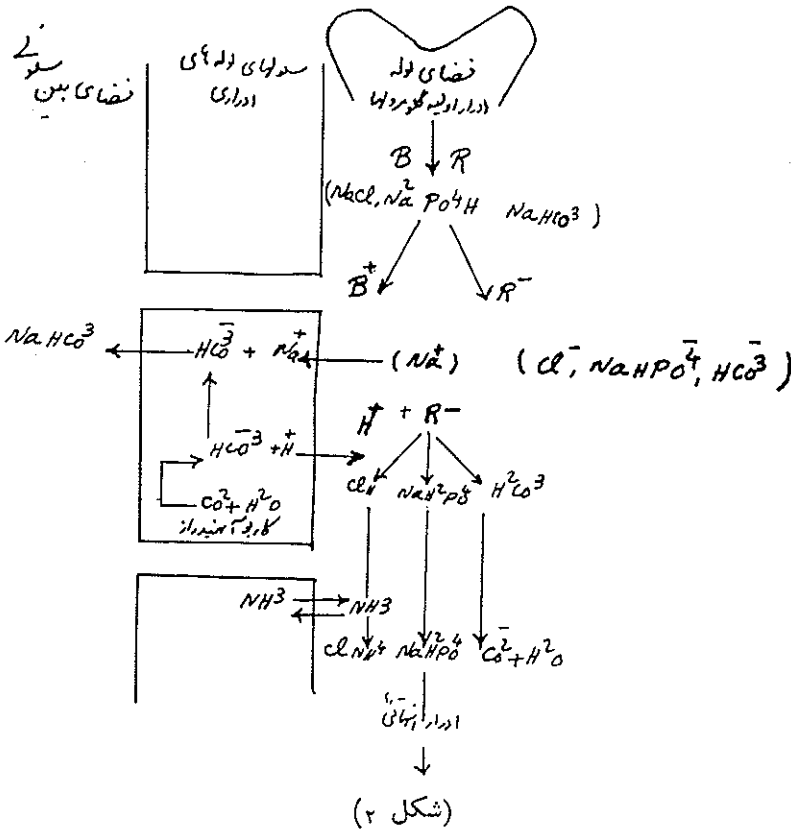 فضای بین سلولی
سلولهای لوله های
ادراری
فضای لوله
ادرار اولیه گلومرولها
B R
(NaCl, Na² Po⁴H NaHco³)
B⁺ R⁻
NaHco³ Hco³⁻ + Na⁺ (Na⁺) (Cl⁻, NaHPo⁴⁻, Hco³⁻)
H⁺ + R⁻
Hco³⁻ + H⁺
ClH NaH²Po⁴ H²Co³
Co² + H²O
NH³ NH3
Cl NH⁴ NaH²Po⁴ Co² + H²O
ادرار نهائی
(شکل ۲)